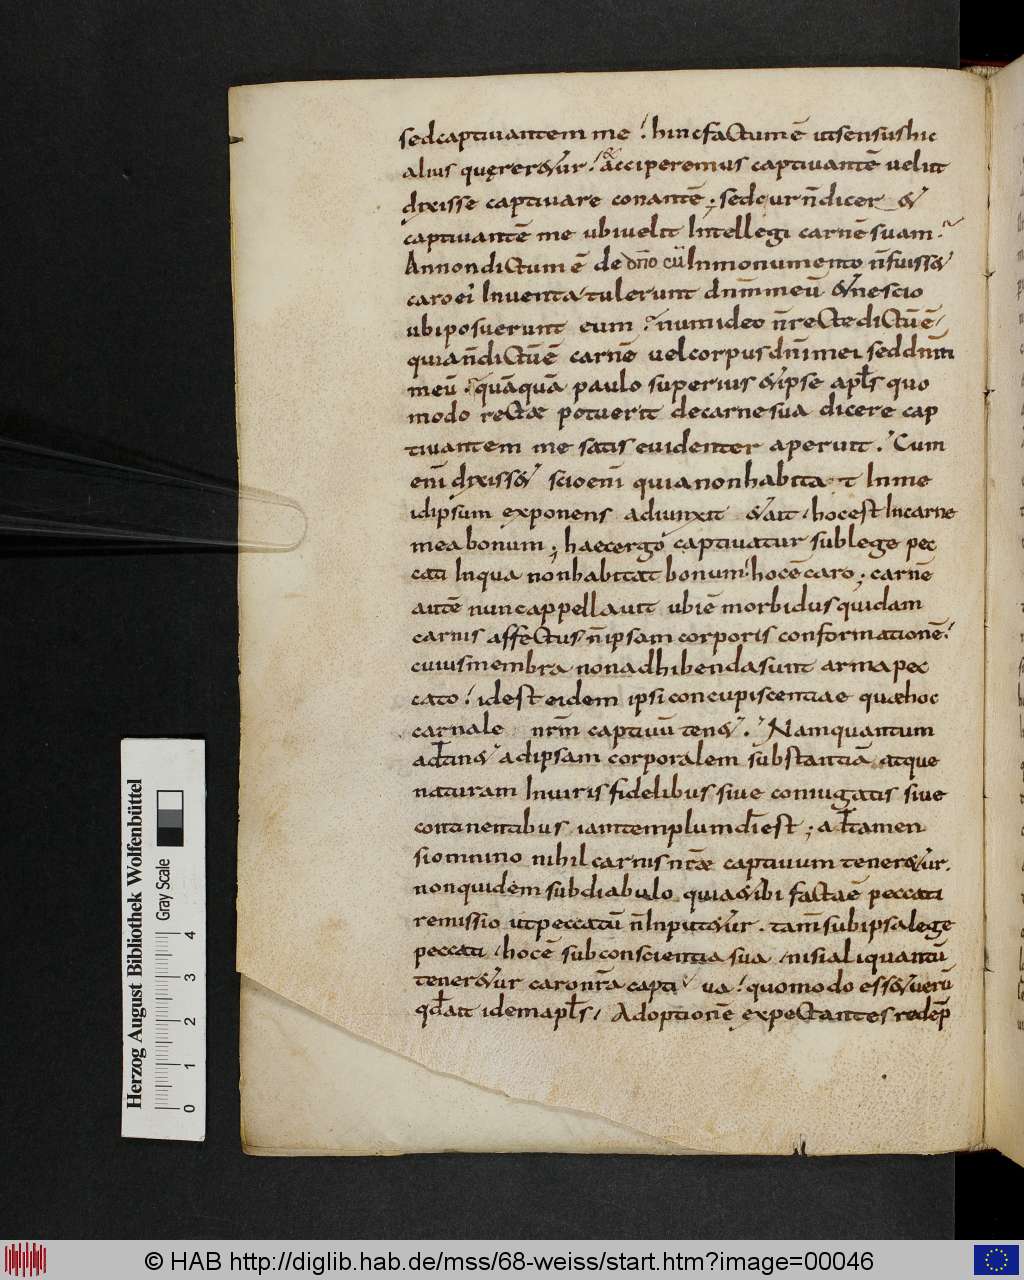 sedcaptiuantem me hincfactumē utsensushic
alius quęrer&ur accciperemus captiuantē uelut
dixisse captiuare conantē; sedcur n̄dicer &
captiuantē me ubiuelit Intellegi carnē suam
Annondictum ē de dn̄o cū Inmonumento n̄fuiss&
caroei Inuenta tulerunt dnm̄meū &nescio
ubiposuerunt eum numideo n̄rectedictūē
quian̄dictūē carnē uelcorpusdn̄imei seddnm̄
meū quāquā paulo superius &ipse apl̄s quo
modo rectae potuerit decarnesua dicere cap
tiuantem me satis euidenter aperuit. Cum
enī dixiss& scioenī quianonhabitat Inme
idipsum exponens adiunxit &ait hocest Incarne
meabonum; haecergo captiuatur sublege pec
cati Inqua nonhabitat bonum hocē caro; carnē
autē nuncappellauit ubiē morbidusquidam
carnis affectus n̄ipsam corporis conformationē
cuiusmembra nonadhibendasunt armapec
cato idest eidem ipsi concupiscentiae quaehoc
carnale nrm̄ captiuū ten&. Namquantum
adtin& adipsam corporalem substantiā atque
naturam Inuiris fidelibus siue coniugatis siue
continentibus iamtemplumdīest; adtamen
siomnino nihil carnis nrāe captiuum tener&ur.
nonquidem subdiabulo quia&ibi factaē peccati
remissio utpeccatū n̄Input&ur. tam̄ subipsalege
peccati hocē subconscientia sua nisialiquantū
tener&ur caronrā capti ua quomodo ess&uerū
qđait idemapl̄s Adoptionē expectantes redēp
Herzog August Bibliothek Wolfenbüttel
Gray Scale
0 1 2 3 4
© HAB http://diglib.hab.de/mss/68-weiss/start.htm?image=00046